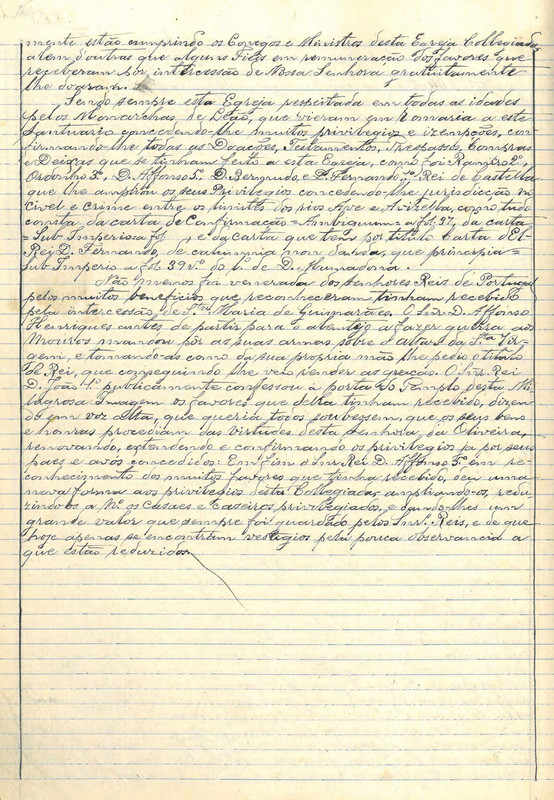 mente estão cumprindo os Conegos e Ministros desta Egreja Collegiada
alem d'outras que alguns Fieis em remuneração dos favores que
receberam por intercessão de Nossa Senhora gratuitamente
lhe doaram.
Sendo sempre esta Egreja respeitada em todas as idades
pelos Monarchas de Leão, que vieram em Romaria a este
Santuario concedendo-lhe muitos privilegios e izempções, con-
firmando-lhe todas as Doações, Testamentos, Trespassos, Compras
e Deixas que se tinham feito a esta Egreja, como foi Ramiro 2º,
Ordonho 3º, D. Affonso 5º, D. Bermudo, e D. Fernando 1º, Rei de Castella
que lhe ampliou os seus Privilegios concedendo-lhe jurisdicção no
Civel e Crime entre os limites dos rios Ave e Avizella, como tudo
consta da carta de Confirmação = Ambiguum = a fol. 37, da carta
= Sub Imperio = a fol , e da carta que tem por titulo Carta d'El-
Rei D. Fernando, de calumnia non danda, que principia =
Sub Imperio a fol. 39 vº. do lº de D. Mumadona.
Não menos foi venerada dos senhores Reis de Portugal
pelos muitos beneficios que reconheceram tinham recebido
pela intercessão de Sta Maria de Guimarães. O Snr. D. Affonso
Henriques antes de partir para o alentejo a fazer guerra aos
Mouros mandou pôr as suas armas sobre o altar da Sta Vir-
gem, e tomando-as como da sua propria mão lhe pedio o titulo
de Rei, que conseguindo lhe veio render as graças. O Snr. Rei
D. João 1º publicamente confessou á porta do Templo desta Mi-
lagrosa Imagem os favores que della tinham recebido, dizen-
do em voz alta, que queria todos soubessem, que os seus bens
e honras procediam das virtudes desta Senhora da Oliveira,
renovando, extendendo e confirmando os privilegios já por seus
paes e avós concedidos: Em fim o Snr. Rei D. Affonso 5º em re-
conhecimento dos muitos favores que tinha recebido, deu uma
nova forma aos privilegios desta Collegiada, ampliando-os, redu-
zindo-os a Nº os Casaes e Caseiros privilegiados, e dando-lhes um
grande valor que sempre foi guardado pelos Snrs. Reis, e de que
hoje apenas se encontram vestigios pela pouca observancia a
que estão reduzidos.